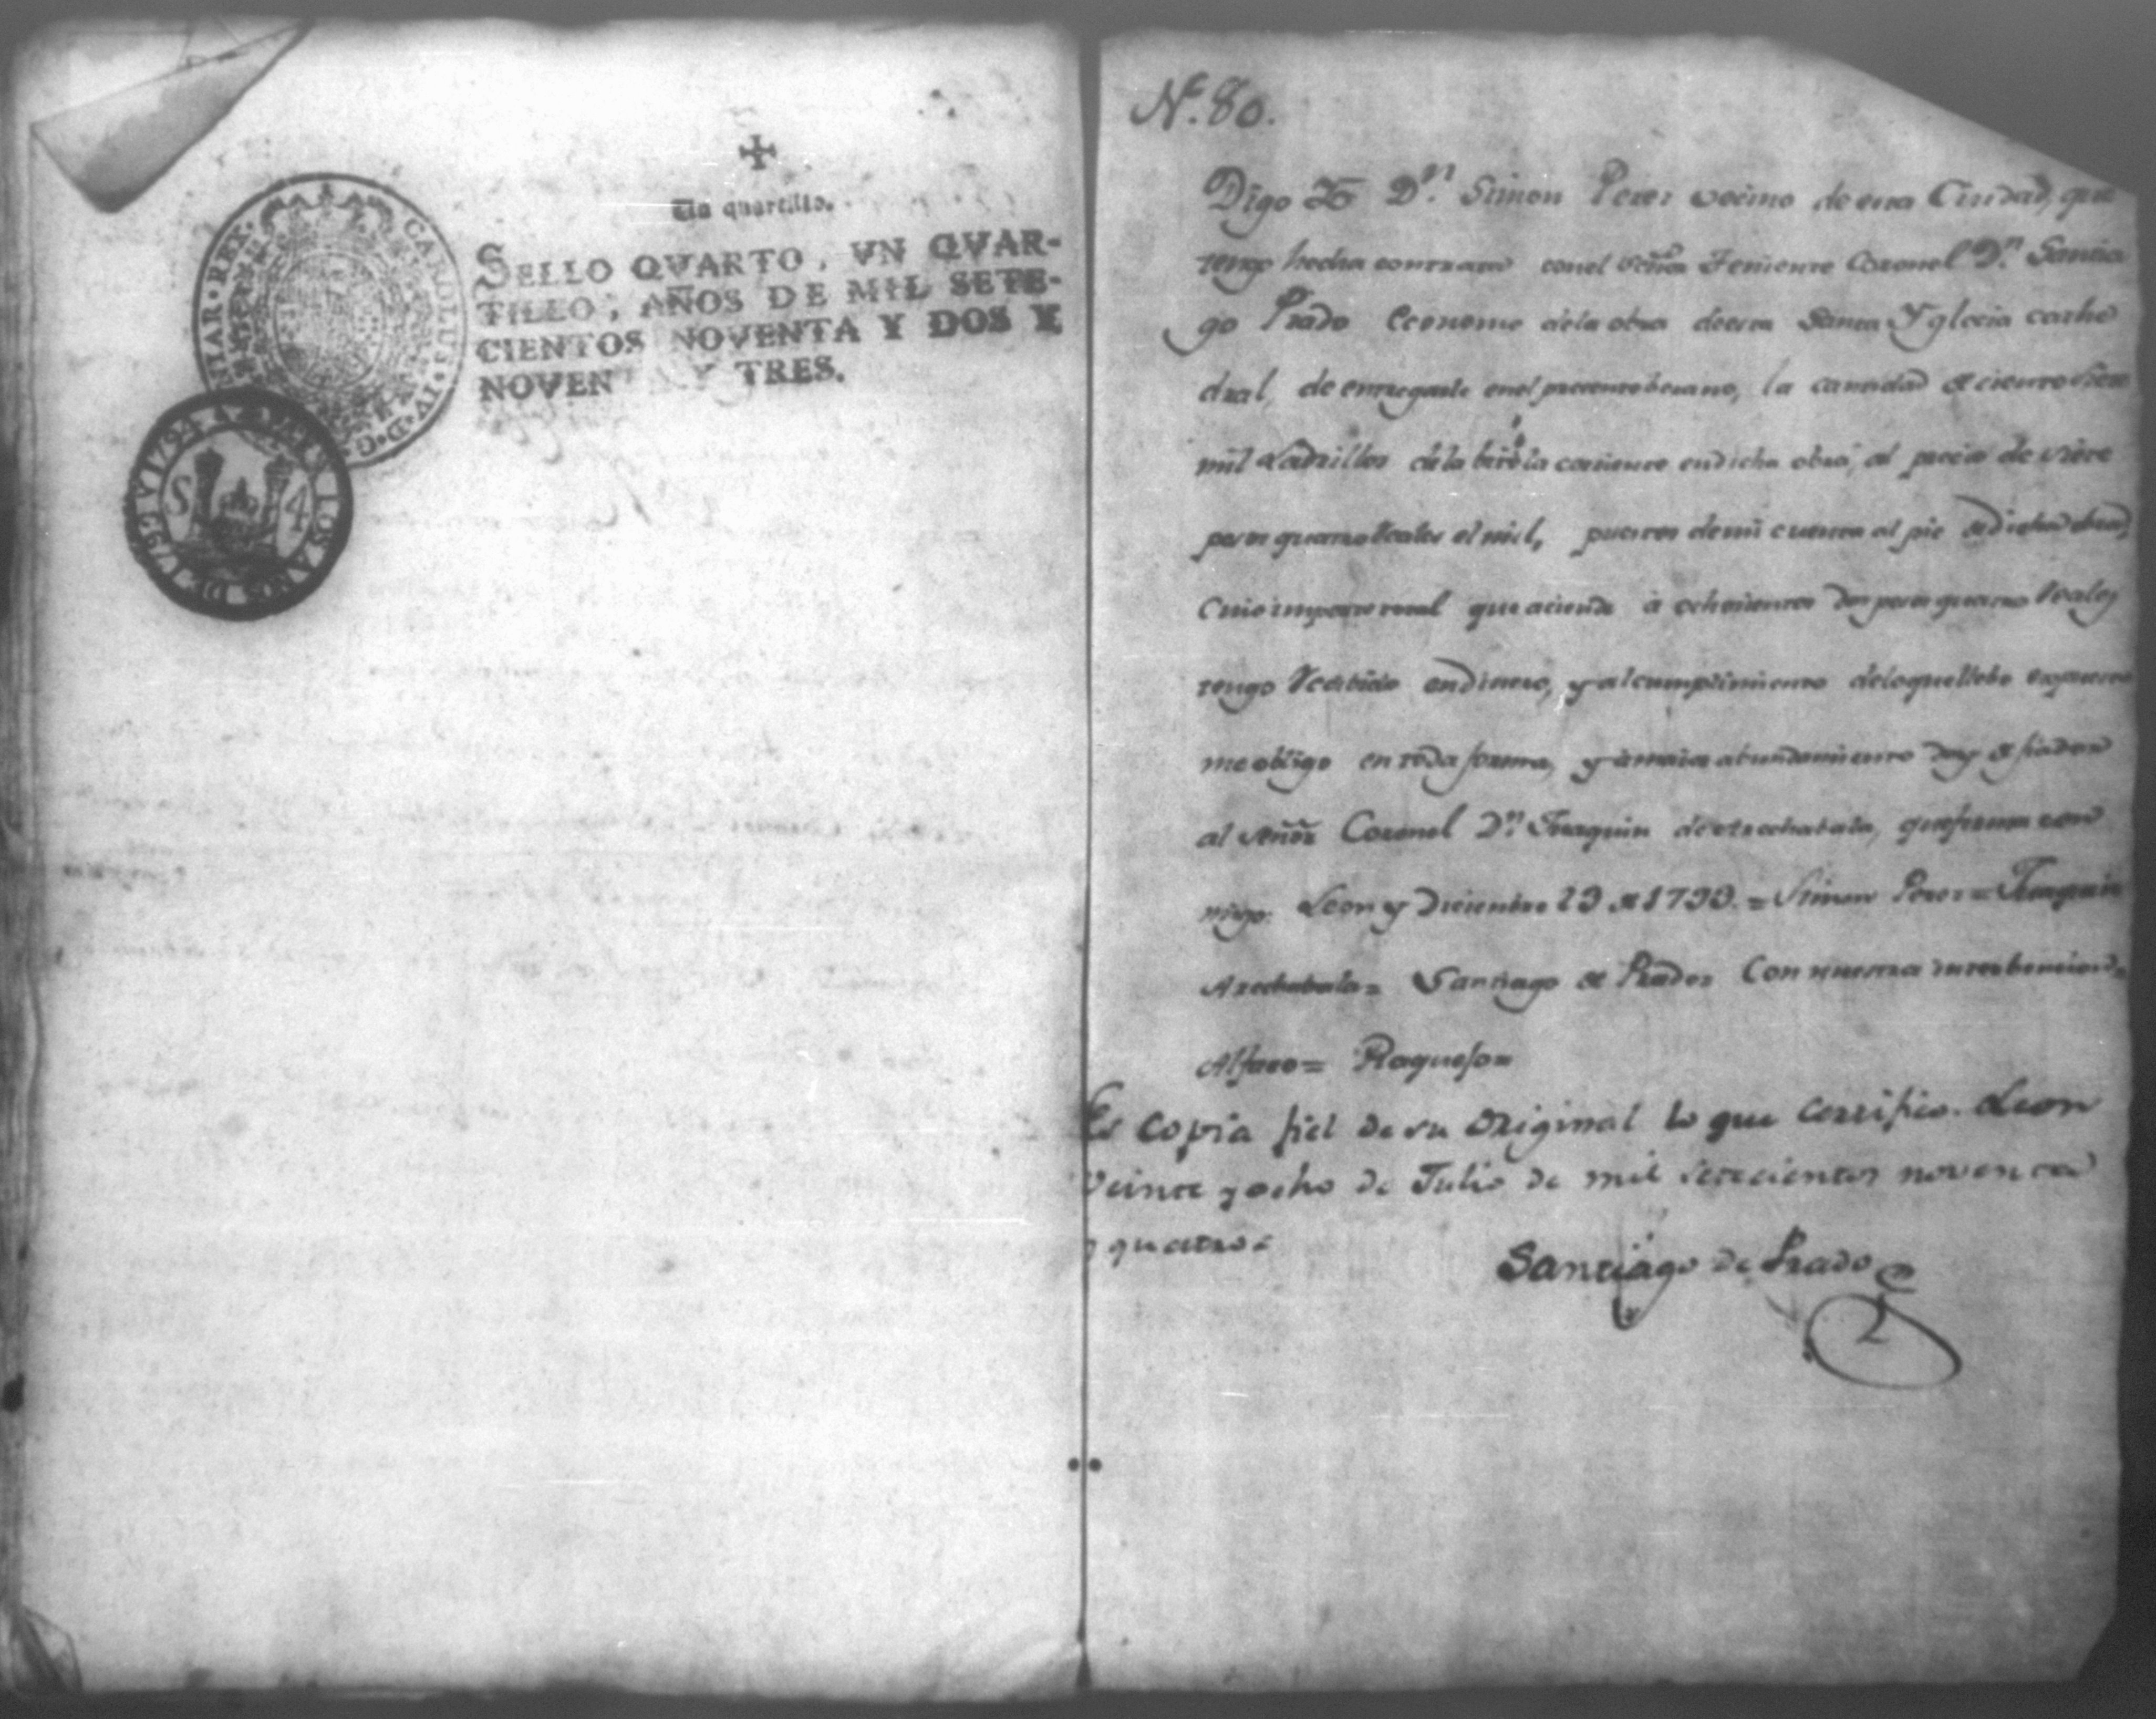 Un quartillo.
SELLO QVARTO, VN QVAR-
TILLO, AÑOS DE MIL SETE-
CIENTOS NOVENTA Y DOS Y
NOVENTA Y TRES.
CAROLUS·IV·D·G· HISPANIAR·REX·
S 4
Nº. 80.
Digo Yo Dn. Simon Perez vecino de esta Ciudad, que
tengo hecha contrata con el señor Teniente Coronel Dn. Santia
go Prado Economo de la obra de esta Santa Yglecia cathe
dral, de entregarle en el precente berano, la cantidad de ciento siete
mil Ladrillos de la bitola corriente en dicha obra, al precio de siete
pesos quatro Reales el mil, puestos de mi cuenta al pie de dicha obra,
Cuio importe total que aciende à ochocientos dos pesos quatro Reales
tengo Recibido en dinero, y al cumplimiento de lo que llebo expuesto
me obligo en toda forma, y à maior abundamiento doy de fiador
al señor Coronel Dn. Juaquin de Arechabala, que firma con
migo. Leon y Diciembre 19 de 1793. = Simon Perez = Juaquin
Arechabala = Santiago de Prado = Con nuestra interbencion =
Alfaro = Raquejo =
Es copia fiel de su original lo que certifico. Leon
veinte y ocho de Julio de mil setecientos noventa
y quatro =
Santiago de Prado